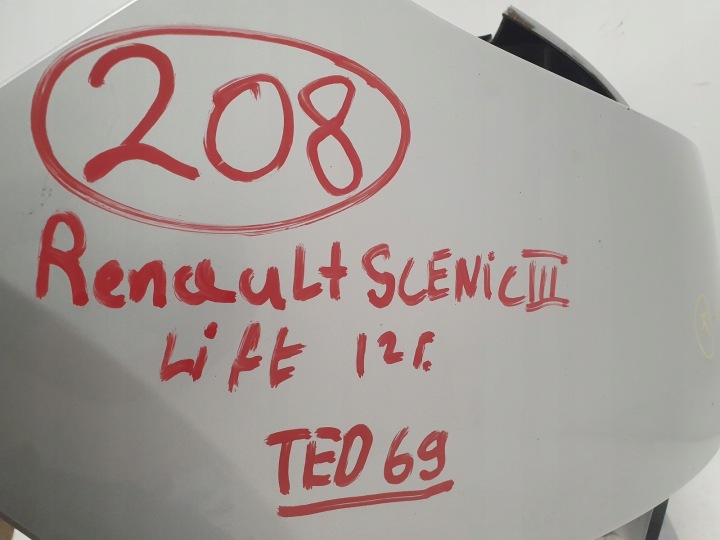 208
Renault SCENiC III
Lift 12r.
TED 69